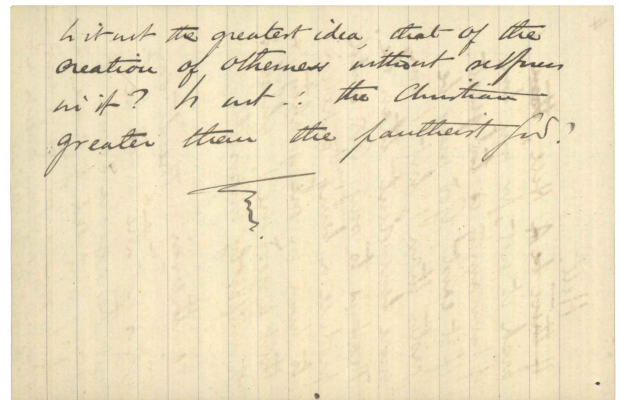 Is it not the greatest idea, that of the
creation of otherness without selfness
in it? Is not ∴ the Christian
greater than the pantheist God?